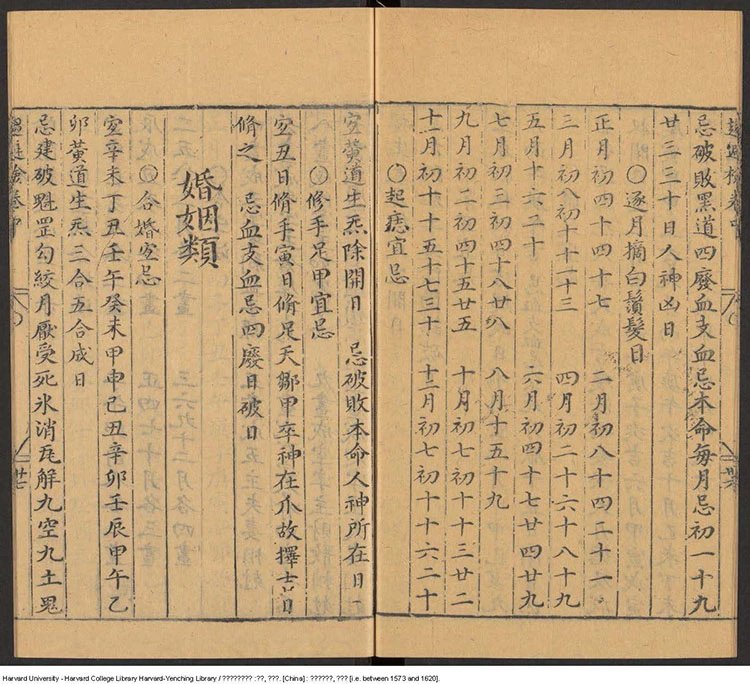 忌破敗黑道四廢血支血忌本命每月忌初一十九
廿三三十日人神凶日
○逐月摘白鬚髮日
正月初四十四十七 二月初八十四二十一
三月初八初十十一十三 四月初二十六十八十九
五月十六二十 六月初四十七廿四廿九
七月初三初四十八廿八 八月十五十九
九月初二初四十五廿五 十月初七初十十三廿二
十一月初十十五十七三十 十二月初七初十十六二十
○起痣宜忌
宜黃道生炁除開日 忌破敗本命人神所在日
○修手足甲宜忌
宜丑日脩手寅日脩足天鄒甲卒神在爪故擇吉日
脩之 忌血支血忌四廢日破日
婚姻類
○合婚宜忌
宜辛未丁丑壬午癸未甲申己丑辛卯壬辰甲午乙
卯黃道生炁三合五合成日
忌建破魁罡勾絞月厭受死氷消瓦解九空九土鬼
Harvard University - Harvard College Library Harvard-Yenching Library / ???????? :??, ???. [China] : ??????, ??? [i.e. between 1573 and 1620].